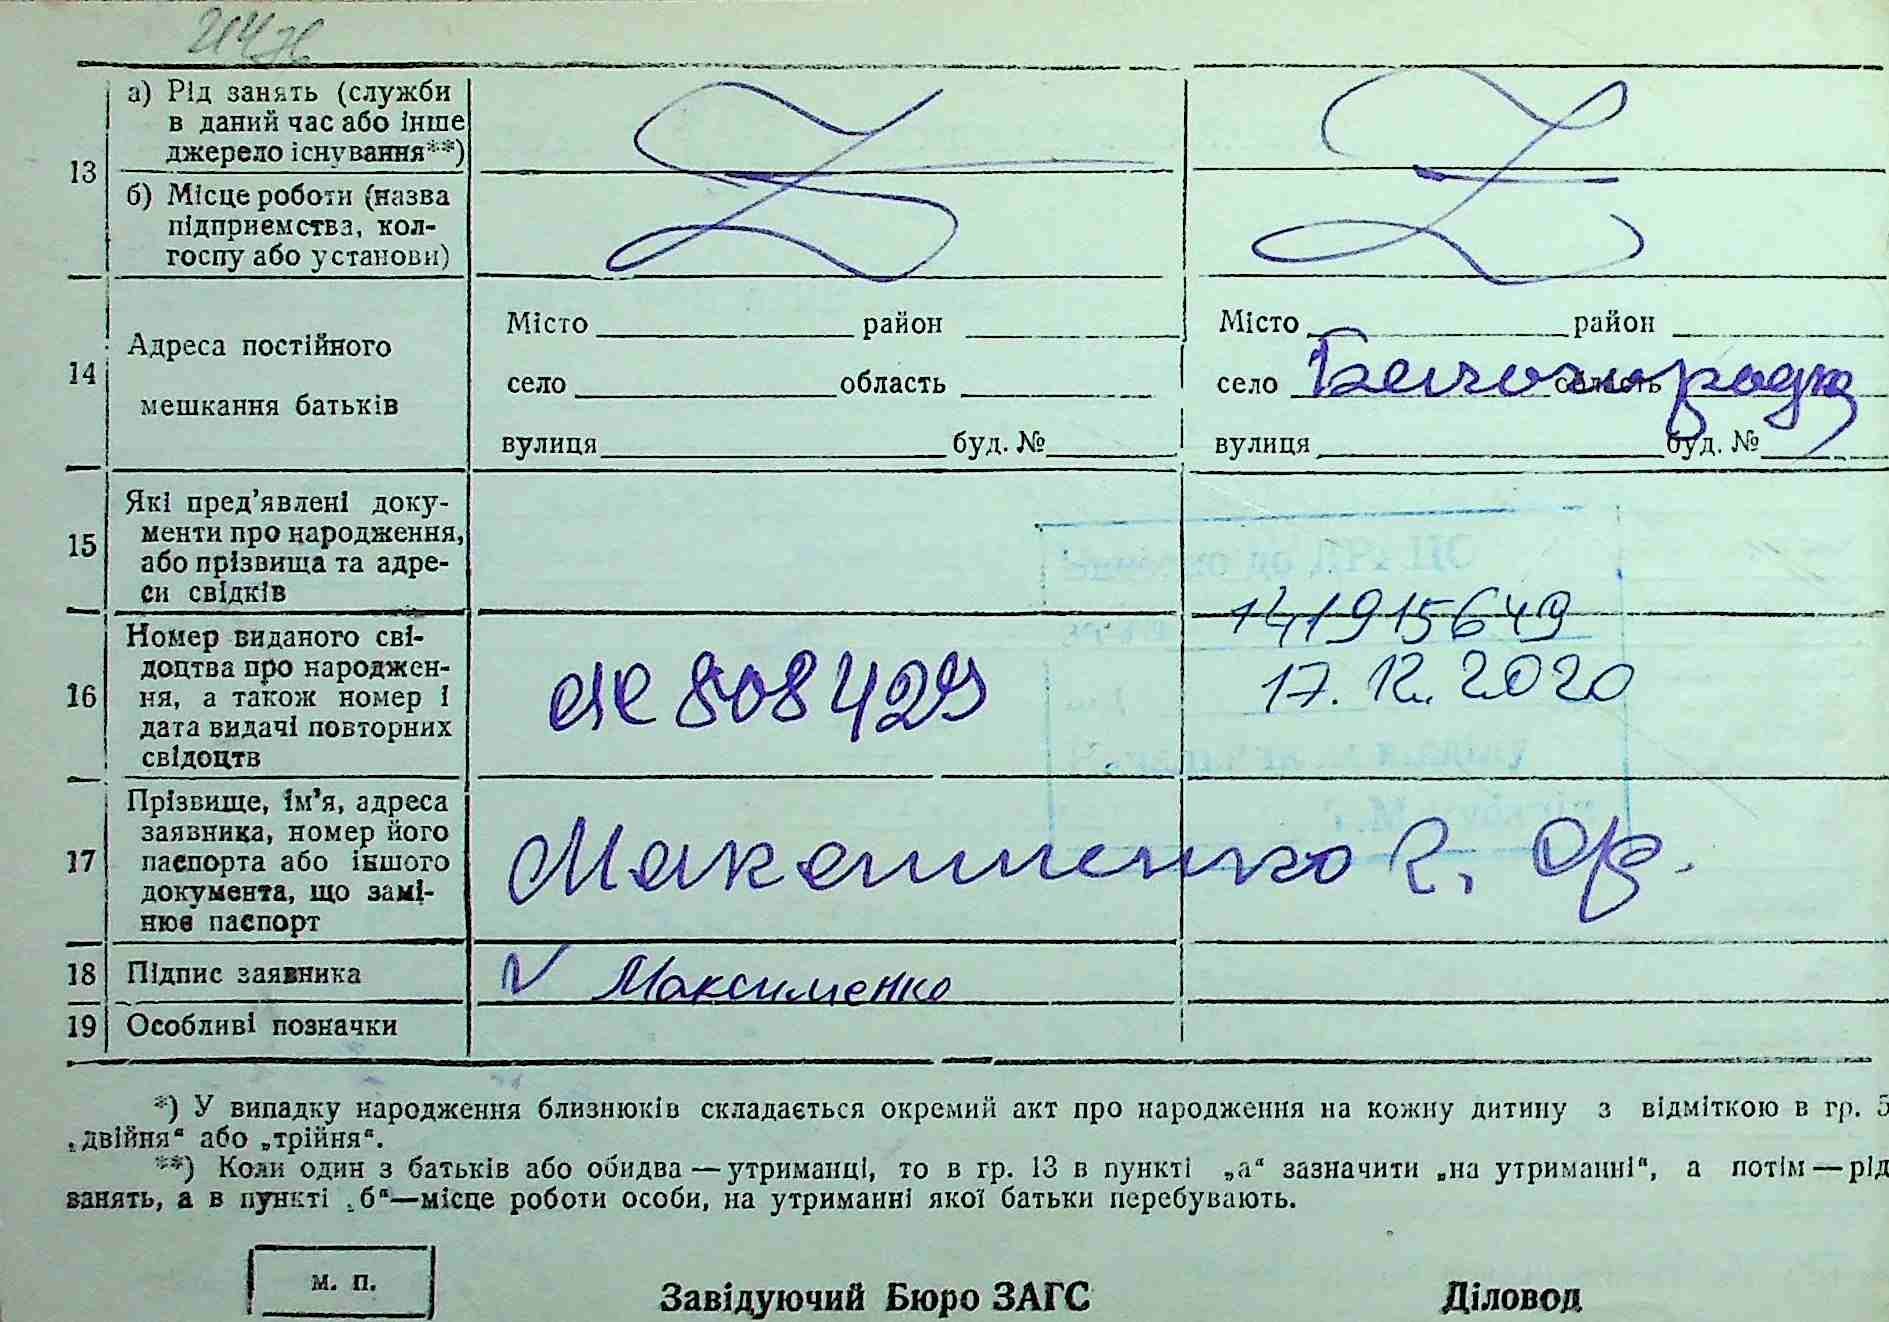 13
а) Рід занять (служби
в даний час або інше
джерело існування**)
б) Місце роботи (назва
підприємства, кол-
госпу або установи)
14
Адреса постійного
мешкання батьків
Місто район
село область
вулиця буд. №
Місто район
село область
вулиця буд. №
15
Які пред’явлені доку-
менти про народження,
або прізвища та адре-
си свідків
16
Номер виданого сві-
доцтва про народжен-
ня, а також номер і
дата видачі повторних
свідоцтв
808429
141915649
17.12.2020
17
Прізвище, ім’я, адреса
заявника, номер його
паспорта або іншого
документа, що замі-
нює паспорт
18
Підпис заявника
V Максименко
19
Особливі позначки
*) У випадку народження близнюків складається окремий акт про народження на кожну дитину з відміткою в гр. 5
„двійня“ або „трійня“.
**) Коли один з батьків або обидва — утриманці, то в гр. 13 в пункті „а“ зазначити „на утриманні“, а потім — рід
занять, а в пункті „б“—місце роботи особи, на утриманні якої батьки перебувають.
м. п.
Завідуючий Бюро ЗАГС
Діловод